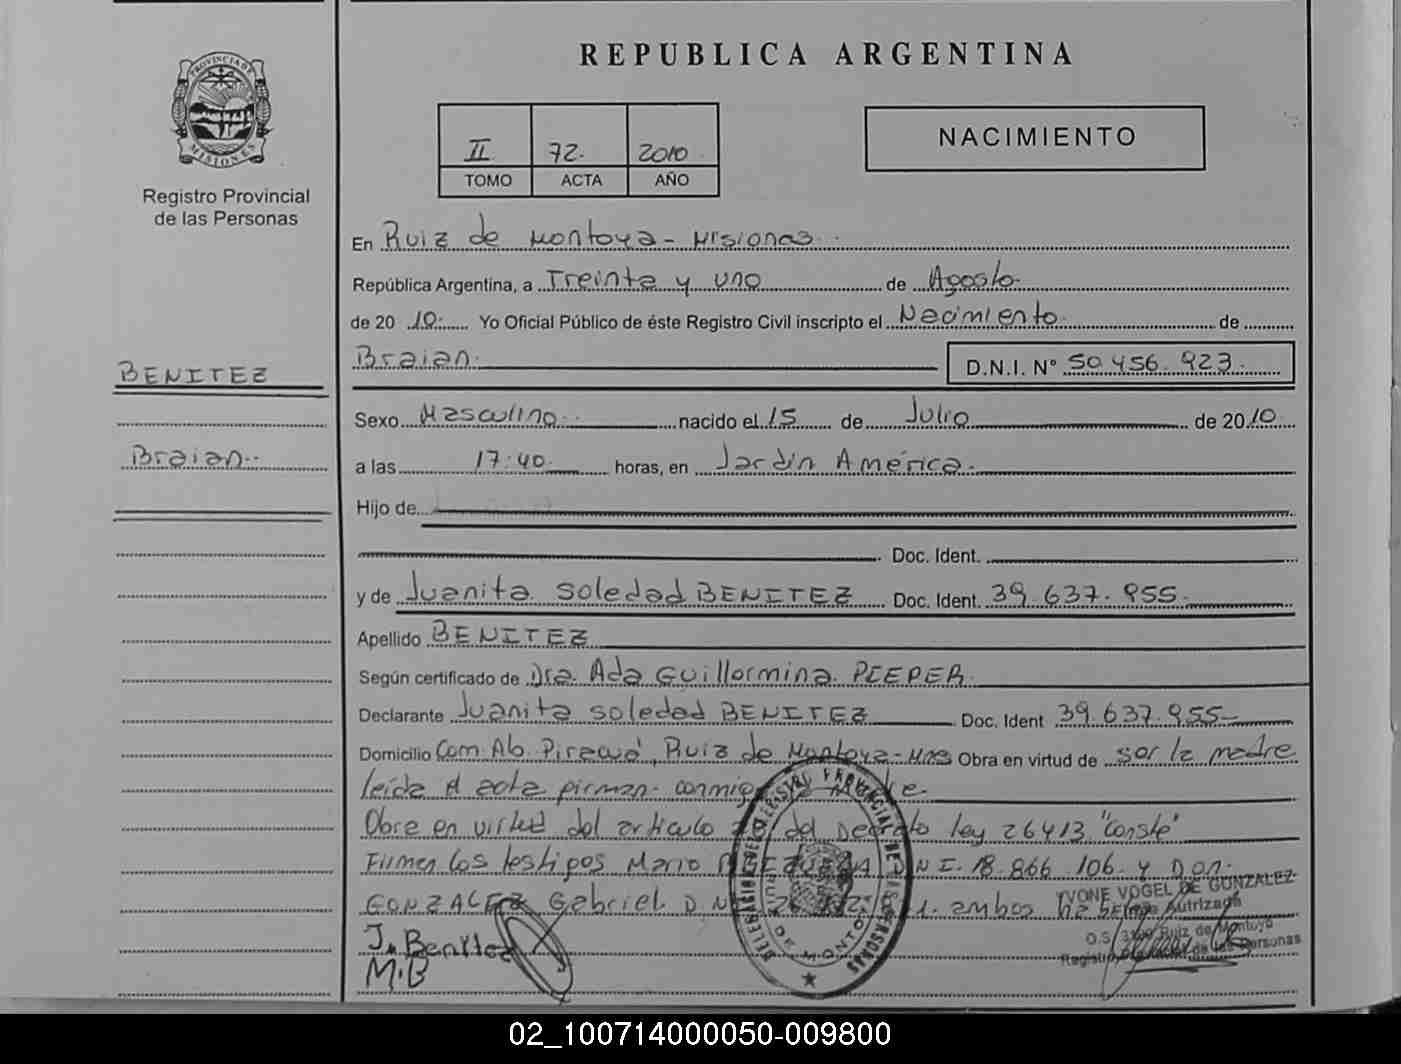 REPUBLICA ARGENTINA
PROVINCIA DE
MISIONES
Registro Provincial
de las Personas
II 72. 2010
TOMO ACTA AÑO
NACIMIENTO
En Ruiz de Montoya - Misiones.
República Argentina, a Treinta y uno de Agosto
de 20 10 Yo Oficial Público de éste Registro Civil inscripto el Nacimiento de
Braian. D.N.I. N° 50.456.923.
BENITEZ
Sexo Masculino nacido el 15 de Julio de 2010
Braian
a las 17:40 horas, en Jardin América.
Hijo de
Doc. Ident.
y de Juanita Soledad BENITEZ Doc. Ident. 39.637.955
Apellido BENITEZ
Según certificado de Dra. Ada Guillermina PIEPER
Declarante Juanita Soledad BENITEZ Doc. Ident 39.637.955
Domicilio Com. Ab. Ruiz de Montoya - Mnes Obra en virtud de ser la madre
leída el acta firman conmigo
Obre en virtud del articulo del Decreto ley 26413 "Conste"
Firman los testigos Mario D.N.I. 18.866.106 y Don
GONZALEZ Gabriel ambos
YVONE VOGEL DE GONZALEZ
O.S. Ruiz de Montoya
J. Benitez
M.B
02_100714000050-009800